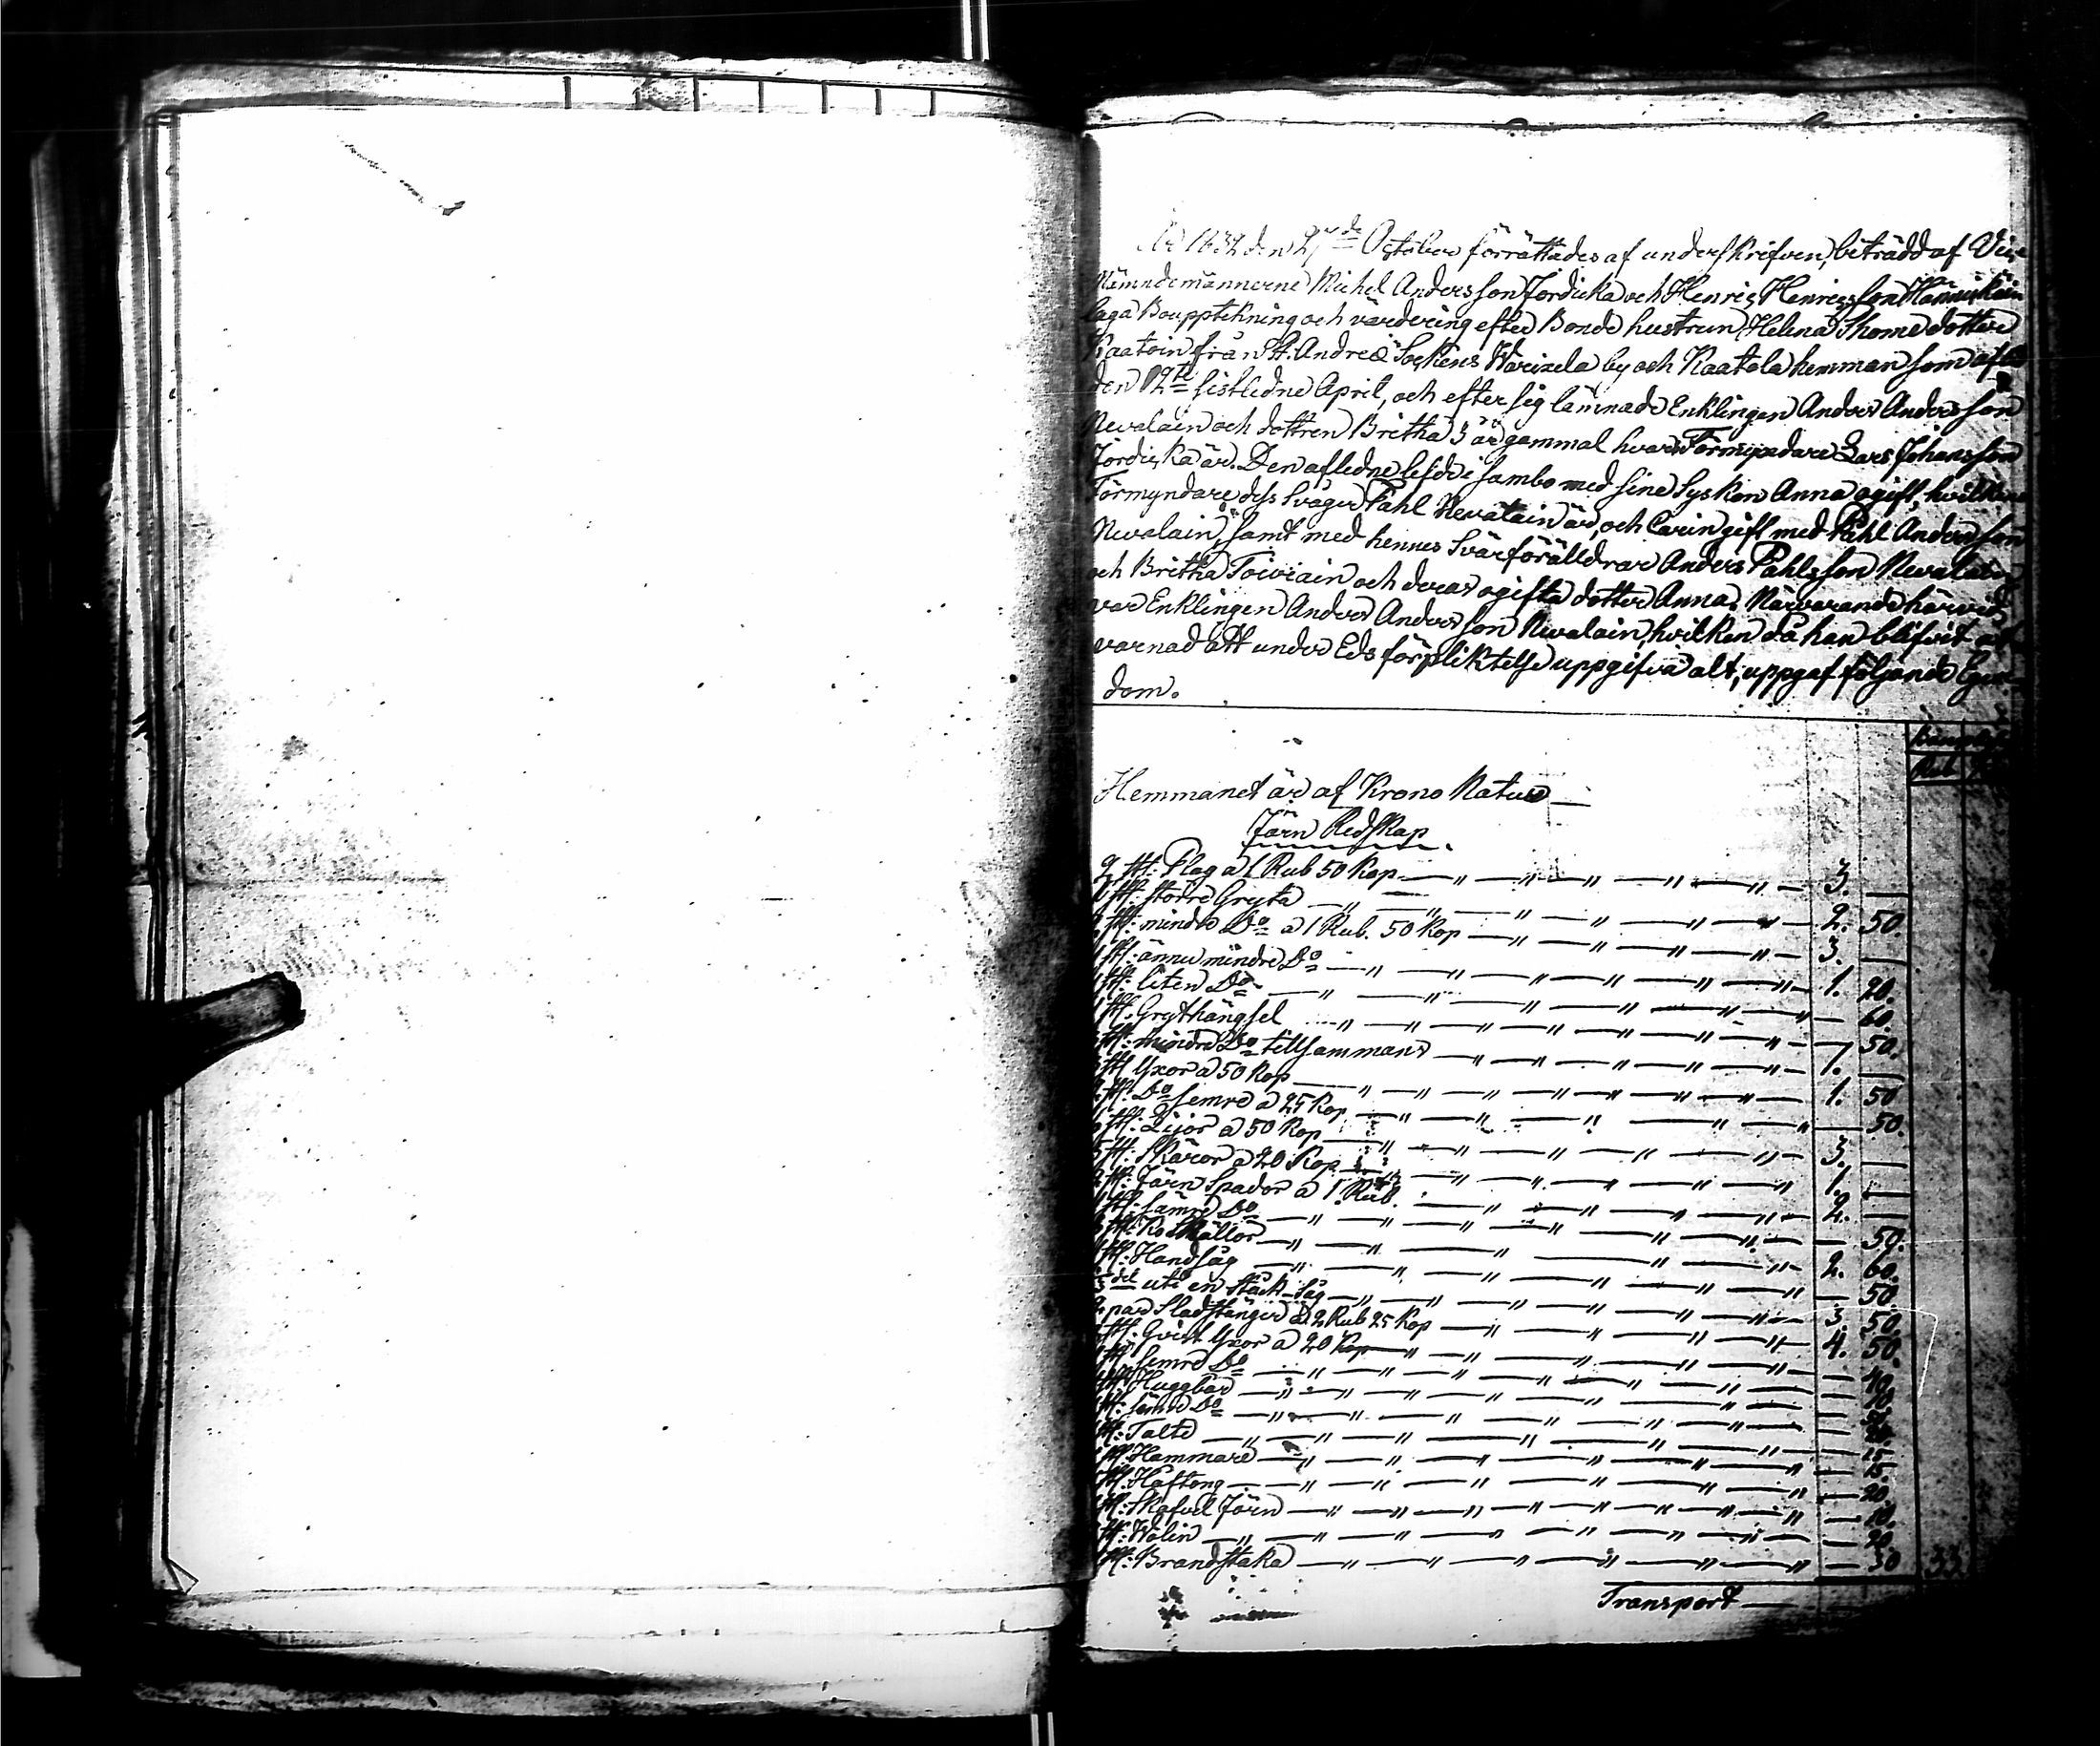 År 1832 den 2de October förrättades af underskrifven, biträdd af Vice
Nämndemännerne Michel Andersson Jordicka och Henric Henricsson Hännikäin
laga Boupptekning och värdering efter Bonde hustrun Helena Thome dotter
Kaatoin från St. Andreæ Sockens Warixela by och Kaatola hemman som afled
den 12te sistledne April, och efter sig lämnade Enklingen Anders Andersson
Nevalain och dottren Britha 3 år gammal hvars Förmyndare Lars Johansson
Jordicka är. Den afledne lefde i sambo med sine Syskon Anna ogift, hvilkens
Förmyndare dess Svåger Påhl Nevalain är, och Carin gift med Påhl Andersson
Nevalain, samt med hennes Svärföräldrar Anders Påhlsson Nevalain
och Britha Toiviain och deras ogifta dotter Anna. Närvarande härvid
var Enklingen Anders Andersson Nevalain, hvilken då han blifvit åt-
varnad att under Eds förpliktelse uppgifva alt, uppgaf följande Egen-
dom.
Rub
Hemmanet är af Krono Natur —
Järn Redskap.
2 st. Plog a 1 Rub 50 Kop — 3. —
1 st. större Gryta — 2. 50.
2 st. mindre Do a 1 Rub. 50 Kop — 3. —
1 st. ännu mindre Do — 1. 20.
1 st. liten Do — 60.
1 st. Grythängsel — 50.
st. mindre Do tillsammans — 1. —
3 st. Yxor a 50 Kop — 1. 50
2 st. Do semre a 25 Kop — 50.
6 st. Lijor a 50 Kop — 3. —
5 st. Skäror a 20 Kop — 1. —
2 st. Järn Spador a 1 Rub. — 2. —
1 st. sämre Do — 50.
st. Koskällor — 2. 60.
1 st. Handsåg — 50.
del uti en Stock-Såg — 3. 50.
2 par Sladstänger a 2 Rub 25 Kop — 4. 50.
2 st. Qvist Yxor a 20 Kop — 40.
1 st. semre Do — 10.
st. Huggbår — 25.
st. sämre Do
st. Talte — 15.
st. Hammare — 15.
st. Håftong — 20.
st. Skafvel Järn — 20.
st. Wolin — 20.
st. Brandstaka — 50 33
Transport —